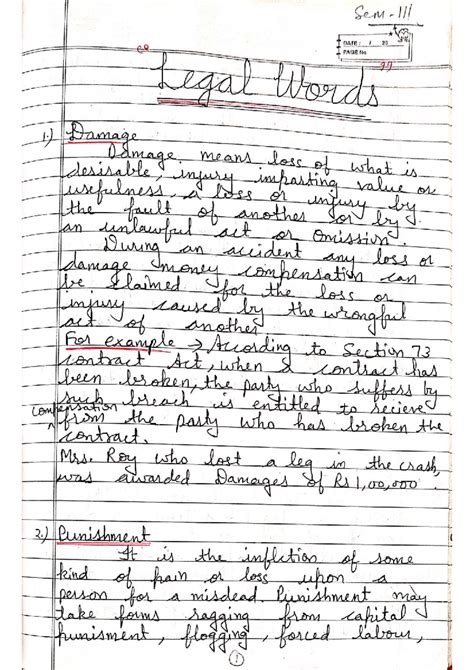 Sem-III
DATE: / / 20
PAGE No
"Legal Words"
1.) Damage
Damage means loss of what is
desirable, injury imparting value or
usefulness, a loss or injury by
the fault of another or by
an unlawful act or omission.
During an accident any loss or
damage money compensation can
be claimed for the loss or
injury caused by the wrongful
act of another.
For example → According to Section 73
contract Act, when a contract has
been broken, the party who suffers by
such breach is entitled to recieve
compensation
from the party who has broken the
contract.
Mrs. Roy who lost a leg in the crash,
was awarded Damages of Rs 1,00,000.
2.) Punishment
It is the infliction of some
kind of pain or loss upon a
person for a misdead. Punishment may
take forms ragging from capital
punisment, flogging, forced labour,
1